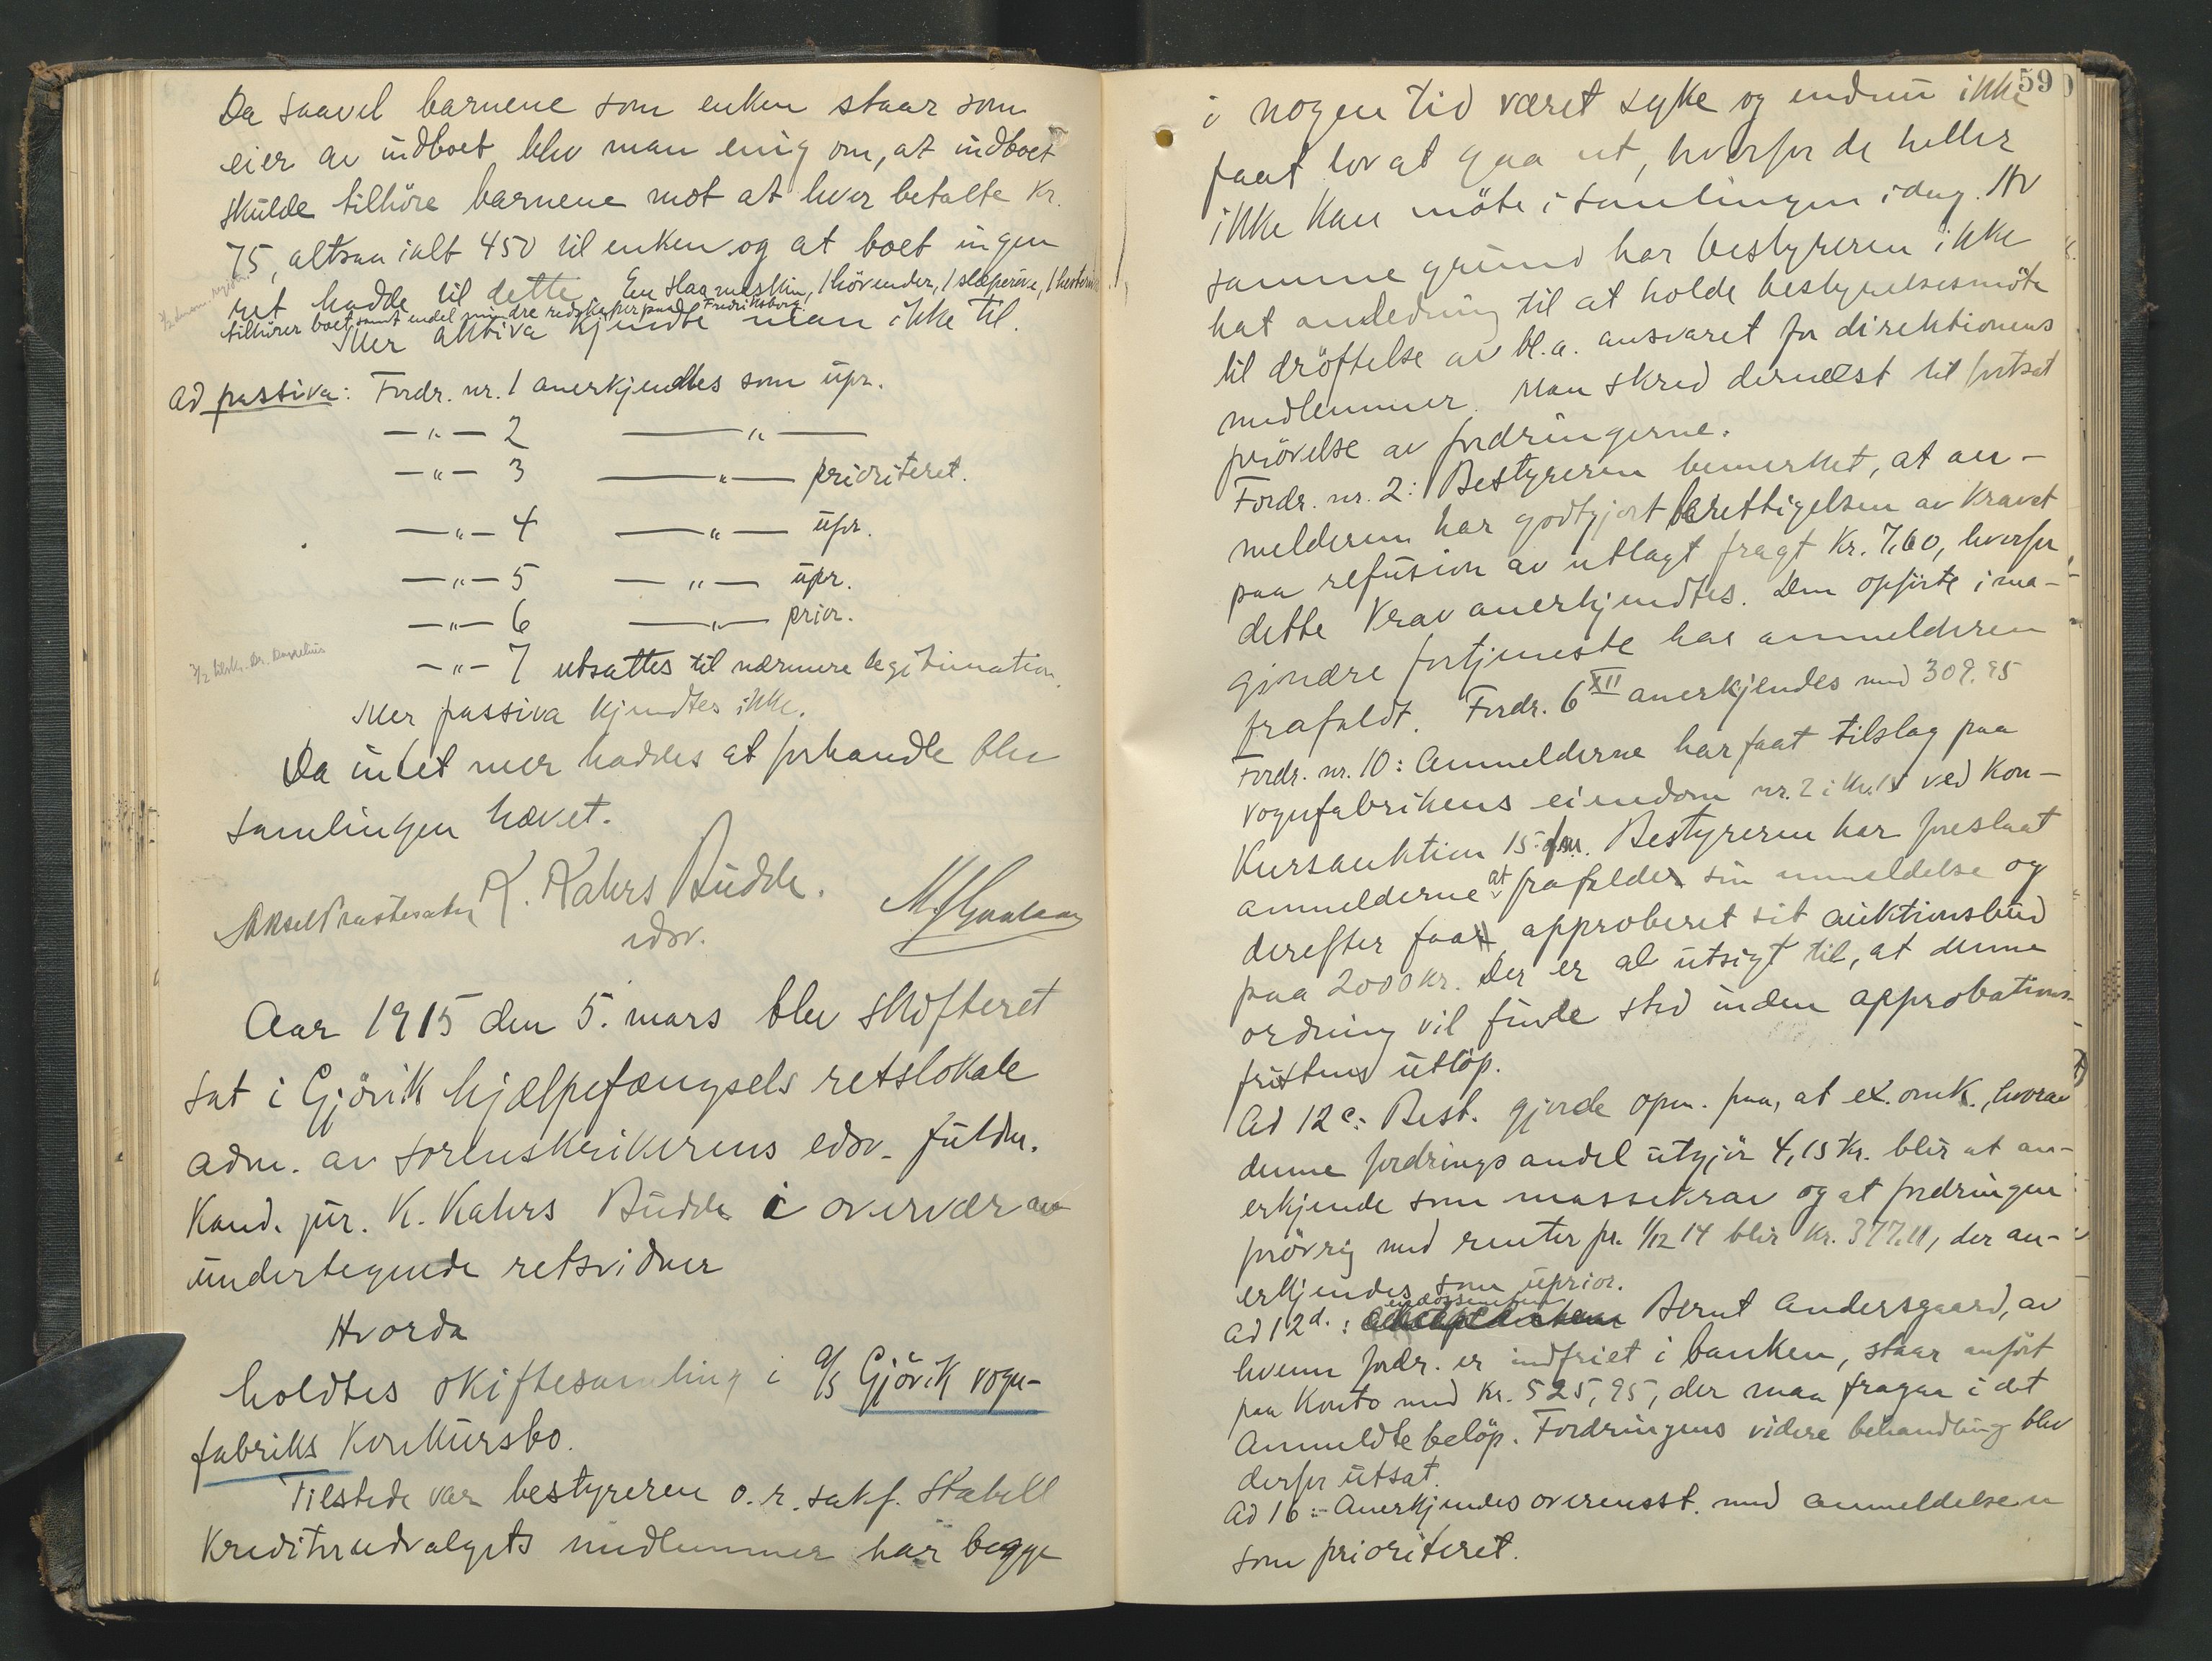 Da saavel barnene som enken staar som
eier av indboet blev man enig om, at indboet
skulde tilhöre barnene mot at hver betalte Kr.
75, altsaa ialt 450 til enken og at boet ingen
ret hadde til dette. En slaamaskin, 1 hövender, 1 slæperive, 1 hesterive
tilhörer boet samt endel mindre redskaper paa Fredriksborg.
Mer aktiva kjendte man ikke til.
Ad passiva: Fordr. nr. 1 anerkjendtes som upr.
—"— 2 —"—
—"— 3 —"— prioriteret.
—"— 4 —"— upr.
—"— 5 —"— upr.
—"— 6 —"— prior.
—"— 7 utsattes til nærmere legitimation.
Mer passiva kjendtes ikke.
Da intet mer haddes at forhandle blev
samlingen hævet.
K. Kahrs Budde.
edsv.
Aar 1915 den 5. mars blev skifteret
sat i Gjövik hjælpefængsels retslokale
adm. av sorenskriverens edsv. fuldm.
Kand. jur. K. Kahrs Budde i overvær av
undertegnede retsvidner
Hvorda
holdtes skiftesamling i A/S Gjövik vogn-
fabriks Konkursbo.
Tilstede var bestyreren o.r. sakf. Stabell
Kreditorudvalgets medlemmer har begge
59
i nogen tid været syke og endnu ikke
faat lov at gaa ut, hvorfor de heller
ikke kan möte i samlingen idag. Av
samme grund har bestyreren ikke
hat anledning til at holde bestyrelsesmöte
til dröftelse av bl.a. ansvaret for direktionens
medlemmer. Man skred dernæst til fortsat
prövelse av fordringerne.
Fordr. nr. 2: Bestyreren bemerket, at an-
melderen har godtgjort berettigelsen av kravet
paa refusion av utlagt fragt Kr. 7,60, hvorfor
dette krav anerkjendtes. Den opförte ima-
ginære fortjeneste har anmelderen
frafaldt. Fordr. 6 XII anerkjendes med 309.95
Fordr. nr. 10: Anmelderne har faat tilslag paa
vognfabrikens eiendom nr. 2 i Kv. 15 ved Kon-
Kursauktion 15. Bestyreren har foreslaat
anmelderne at frafalde sin anmeldelse og
derefter faa approberet sit auktionsbud
paa 2000 kr. Der er al utsigt til, at denne
ordning vil finde sted inden approbations-
fristens utlöp.
Ad 12 c: Best. gjorde opm. paa, at ex. omk., hvorav
denne fordrings andel utgjör 4,15 Kr. blir at an-
erkjende som massekrav og at fordringen
forövrig med renter pr. 1/12 14 blir Kr. 377.11, der an-
erkjendes som uprior.
Ad 12 d.: endossenten Bernt Andersgaard, av
hvem fordr. er indfriet i banken, staar anfört
paa Konto med Kr. 525,95, der maa fragaa i det
Anmeldte belöp. Fordringens videre behandling blev
derfor utsat.
Ad 16: Anerkjendes overensst. med anmeldelsen
som prioriteret.